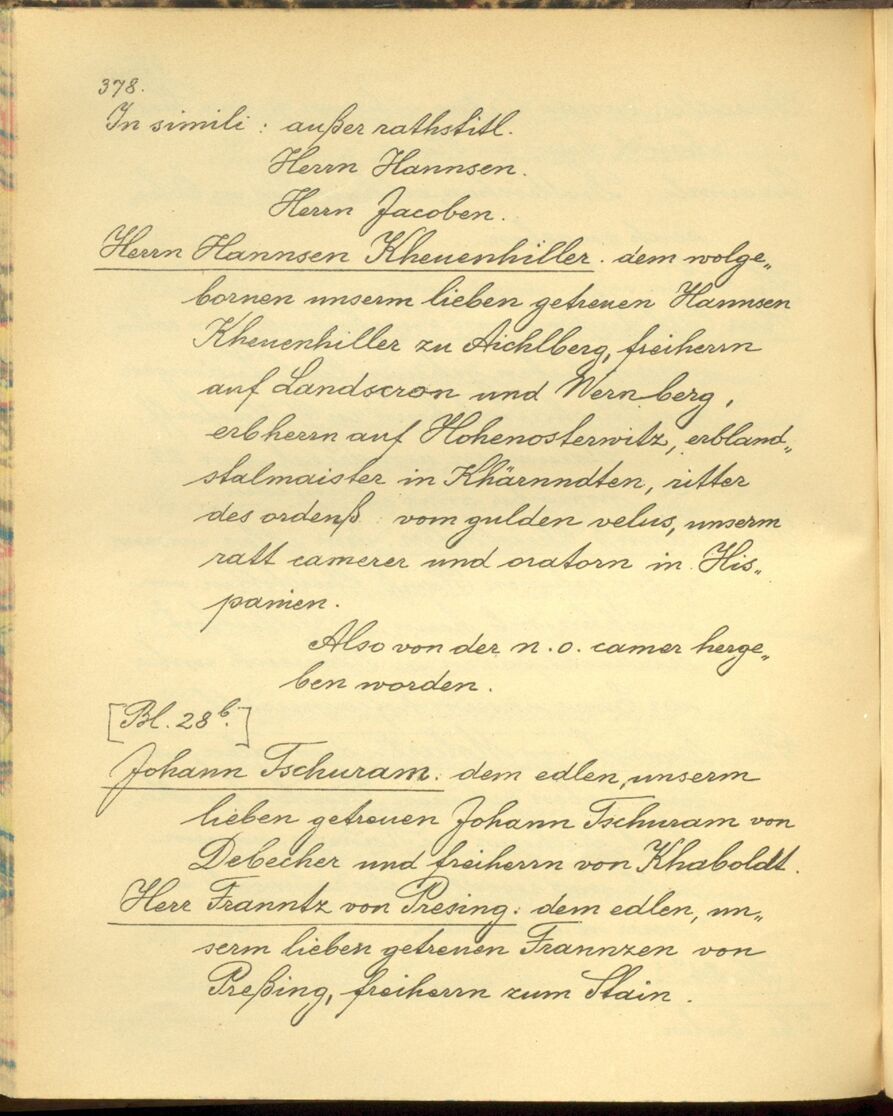 378.
In simili : außer rathstitl.
Herrn Hannsen.
Herrn Jacoben.
Herrn Hannsen Kheuenhiller. dem wolge„
bornen unserm lieben getreuen Hannsen
Kheuenhiller zu Aichlberg, freiherrn
auf Landscron und Wernberg,
erbherrn auf Hohenosterwitz, erbland„
stalmaister in Khärnndten, ritter
des ordenß vom gulden velus, unserm
ratt camerer und oratorn in His„
panien.
Also von der n. o. camer herge„
ben worden.
[Bl. 28b.]
Johann Tschuram. dem edlen, unserm
lieben getreuen Johann Tschuram von
Debecher und freiherrn von Khaboldt.
Herr Franntz von Presing: dem edlen, un„
serm lieben getreuen Frannzen von
Preßing, freiherrn zum Stain.